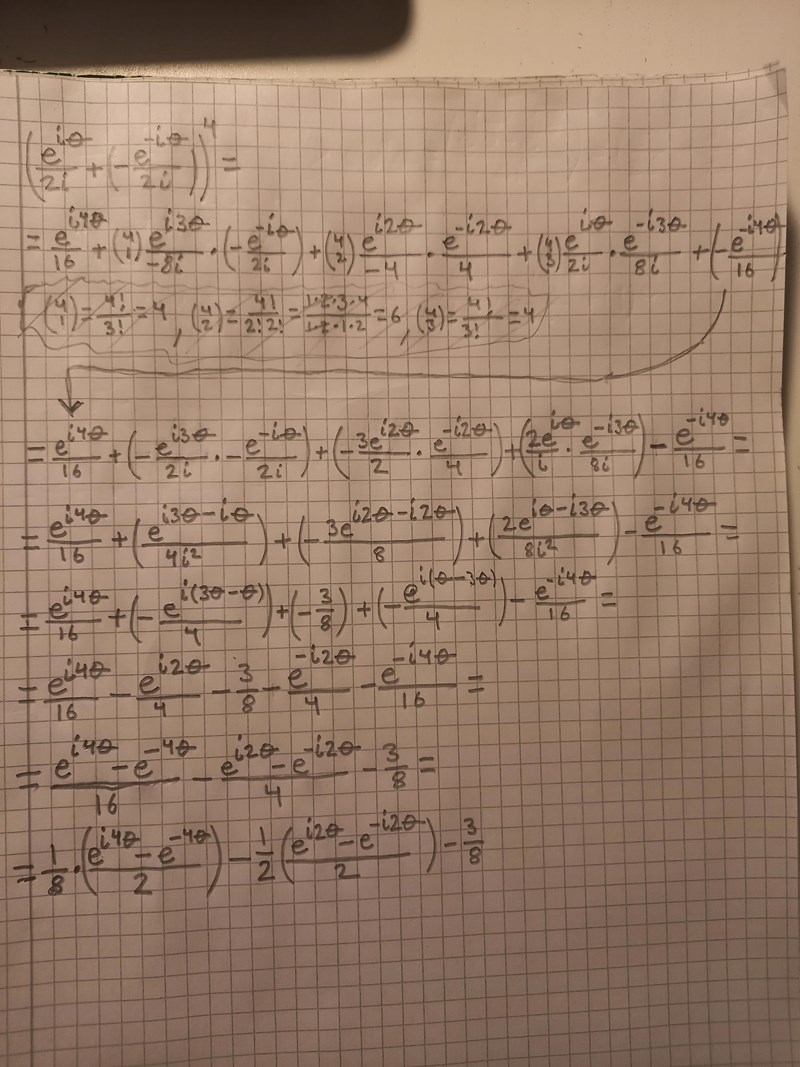 (e^{iθ}/2i + (-e^{-iθ}/2i))^4 =
= e^{i4θ}/16 + (4 1) e^{i3θ}/-8i · (-e^{-iθ}/2i) + (4 2) e^{i2θ}/-4 · e^{-i2θ}/4 + (4 3) e^{iθ}/2i · e^{-i3θ}/8i + (-e^{-i4θ}/16)
(4 1) = 4!/3! = 4, (4 2) = 4!/2!2! = 1·2·3·4/1·2·1·2 = 6, (4 3) = 4!/3! = 4
= e^{i4θ}/16 + (-e^{i3θ}/2i · -e^{-iθ}/2i) + (-3e^{i2θ}/2 · e^{-i2θ}/4) + (2e^{iθ}/i · e^{-i3θ}/8i) - e^{-i4θ}/16 =
= e^{i4θ}/16 + (e^{i3θ-iθ}/4i²) + (-3e^{i2θ-i2θ}/8) + (2e^{iθ-i3θ}/8i²) - e^{-i4θ}/16 =
= e^{i4θ}/16 + (-e^{i(3θ-θ)}/4) + (-3/8) + (-e^{i(θ-3θ)}/4) - e^{-i4θ}/16 =
= e^{i4θ}/16 - e^{i2θ}/4 - 3/8 - e^{-i2θ}/4 - e^{-i4θ}/16 =
= e^{i4θ} - e^{-4θ}/16 - e^{i2θ} - e^{-i2θ}/4 - 3/8 =
= 1/8 · (e^{i4θ} - e^{-4θ}/2) - 1/2 (e^{i2θ} - e^{-i2θ}/2) - 3/8